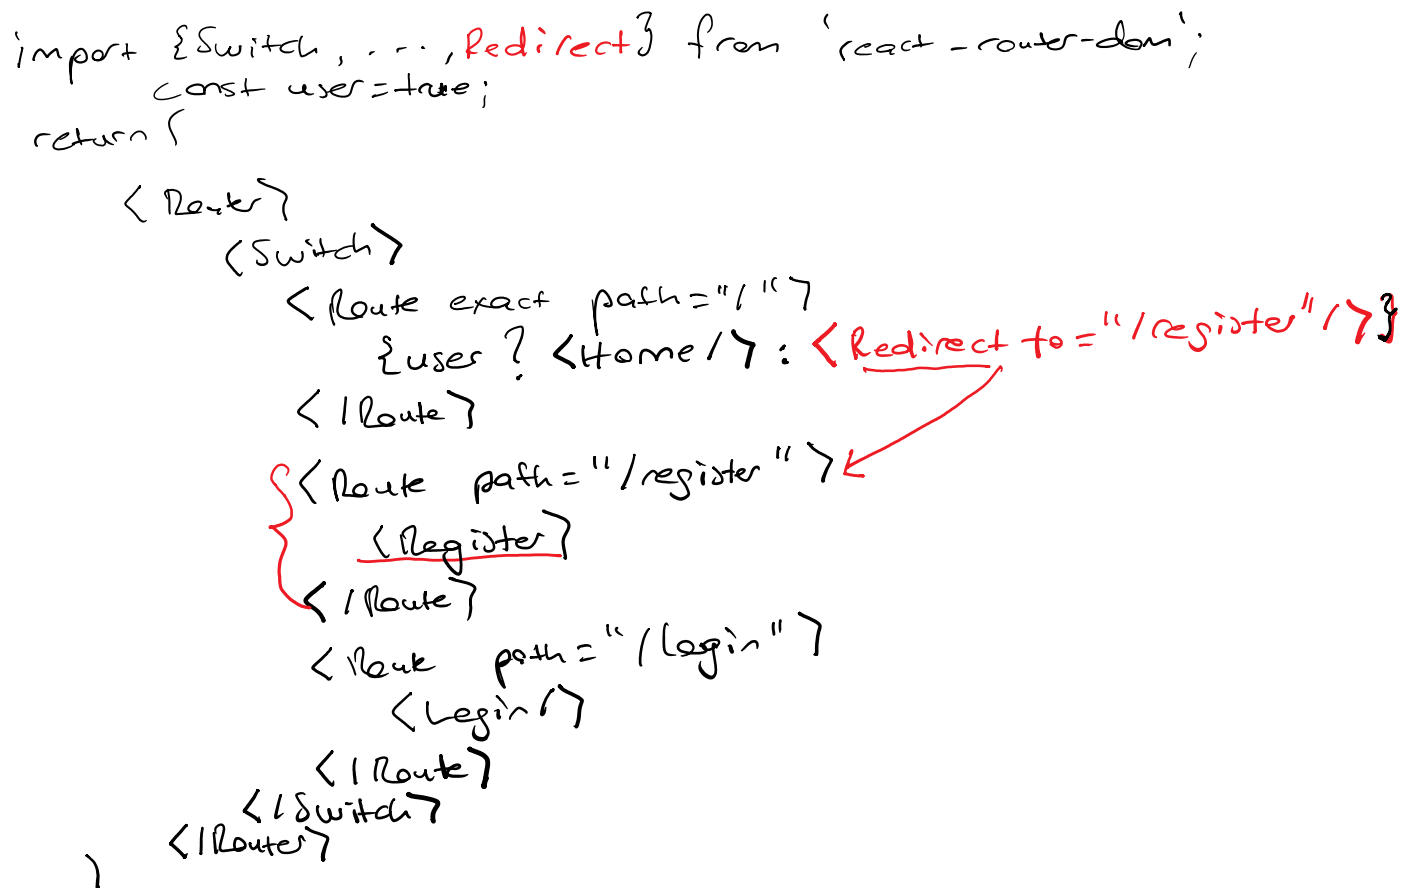 import {Switch, ...., Redirect} from 'react-router-dom';
const user=true;
return (
<Router>
<Switch>
<Route exact path="/">
{user ? <Home/> : <Redirect to="/register"/>}
</Route>
<Route path="/register">
<Register>
</Route>
<Route path="/login">
<Login/>
</Route>
</Switch>
</Router>
)